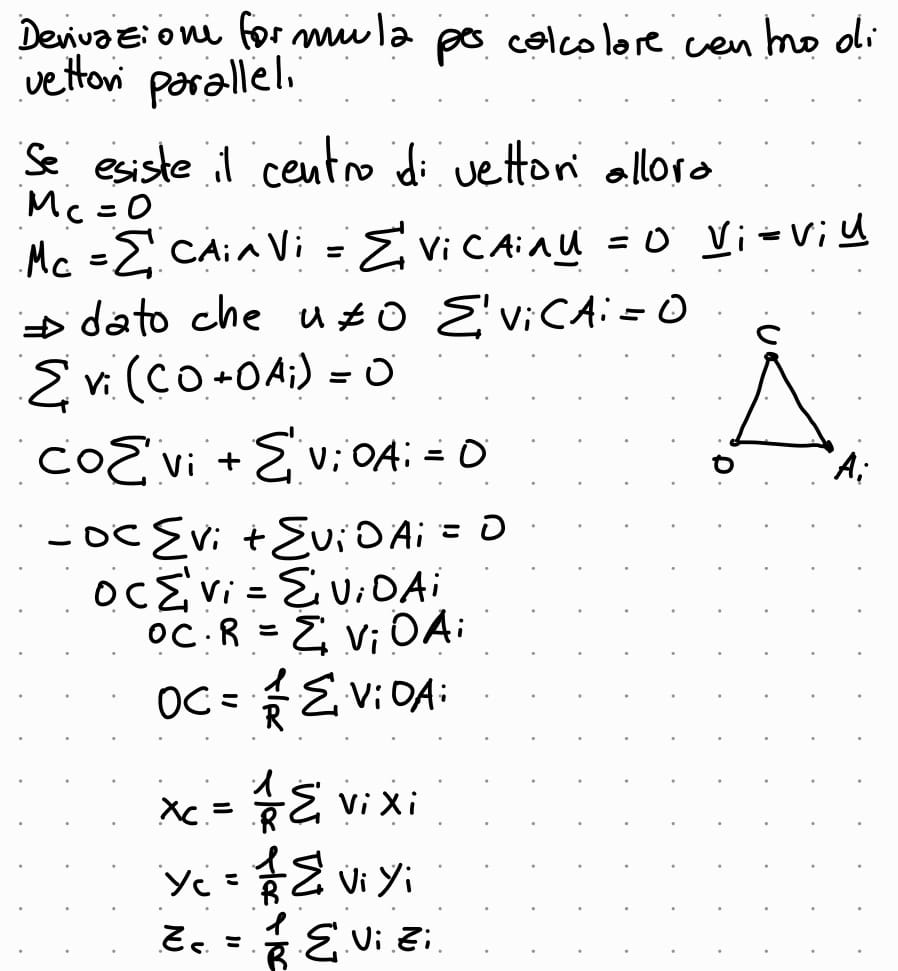 Derivazione formula per calcolare centro di
vettori paralleli
Se esiste il centro di vettori allora
Mc = 0
Mc = Σ CAi ∧ Vi = Σ vi CAi ∧ u = 0 Vi = vi u
⇒ dato che u ≠ 0 Σ vi CAi = 0
C
Σ vi (CO + OAi) = 0
CO Σ vi + Σ vi OAi = 0
O Ai
- OC Σ vi + Σ vi OAi = 0
OC Σ vi = Σ vi OAi
OC · R = Σ vi OAi
OC = 1/R Σ vi OAi
xc = 1/R Σ vi xi
yc = 1/R Σ vi yi
zc = 1/R Σ vi zi